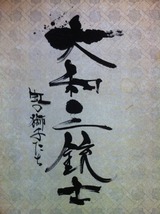 大和三銃士
虹の獅子たち